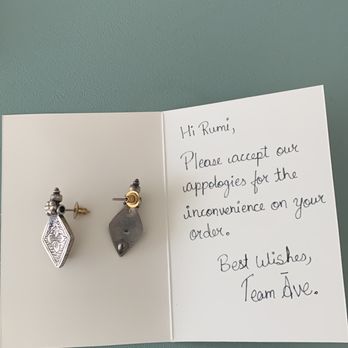 Hi Rumi,
Please accept our
appologies for the
inconvenience on your
order.
Best Wishes,
Team Āve.